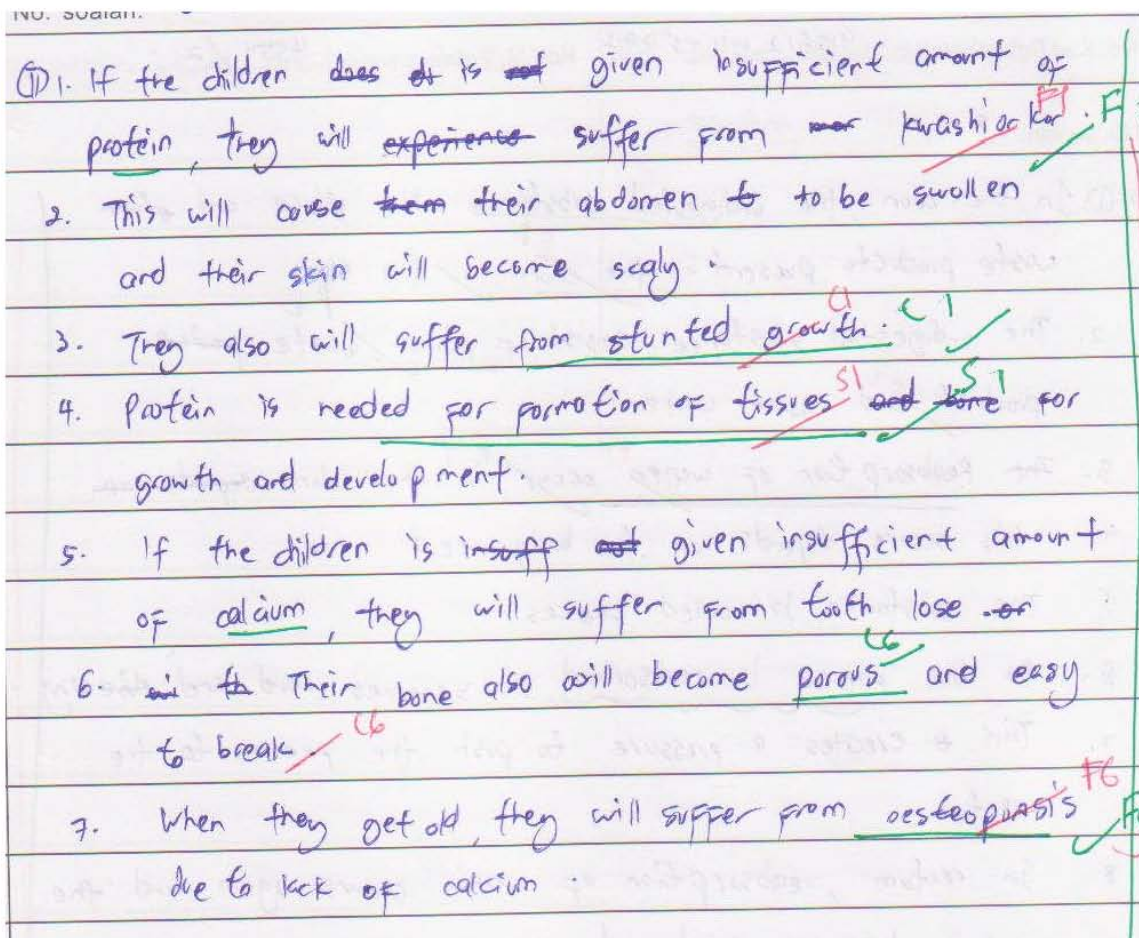 No. soalan:
(ii) 1. If the children does is given insufficient amount of F1
protein, they will experience suffer from kwashiorkor. F
2. This will cause them their abdomen to to be swollen
and their skin will become scaly.
3. They also will suffer from stunted growth. C1 C1
4. Protein is needed for formation of tissues and bone for S1 S1
growth and development
5. If the children is insuff not given insufficient amount
of calcium, they will suffer from tooth lose or
6. Their bone also will become porous and easy C6
to break C6
7. When they get old, they will suffer from oesteoporosis F6 F
due to lack of calcium